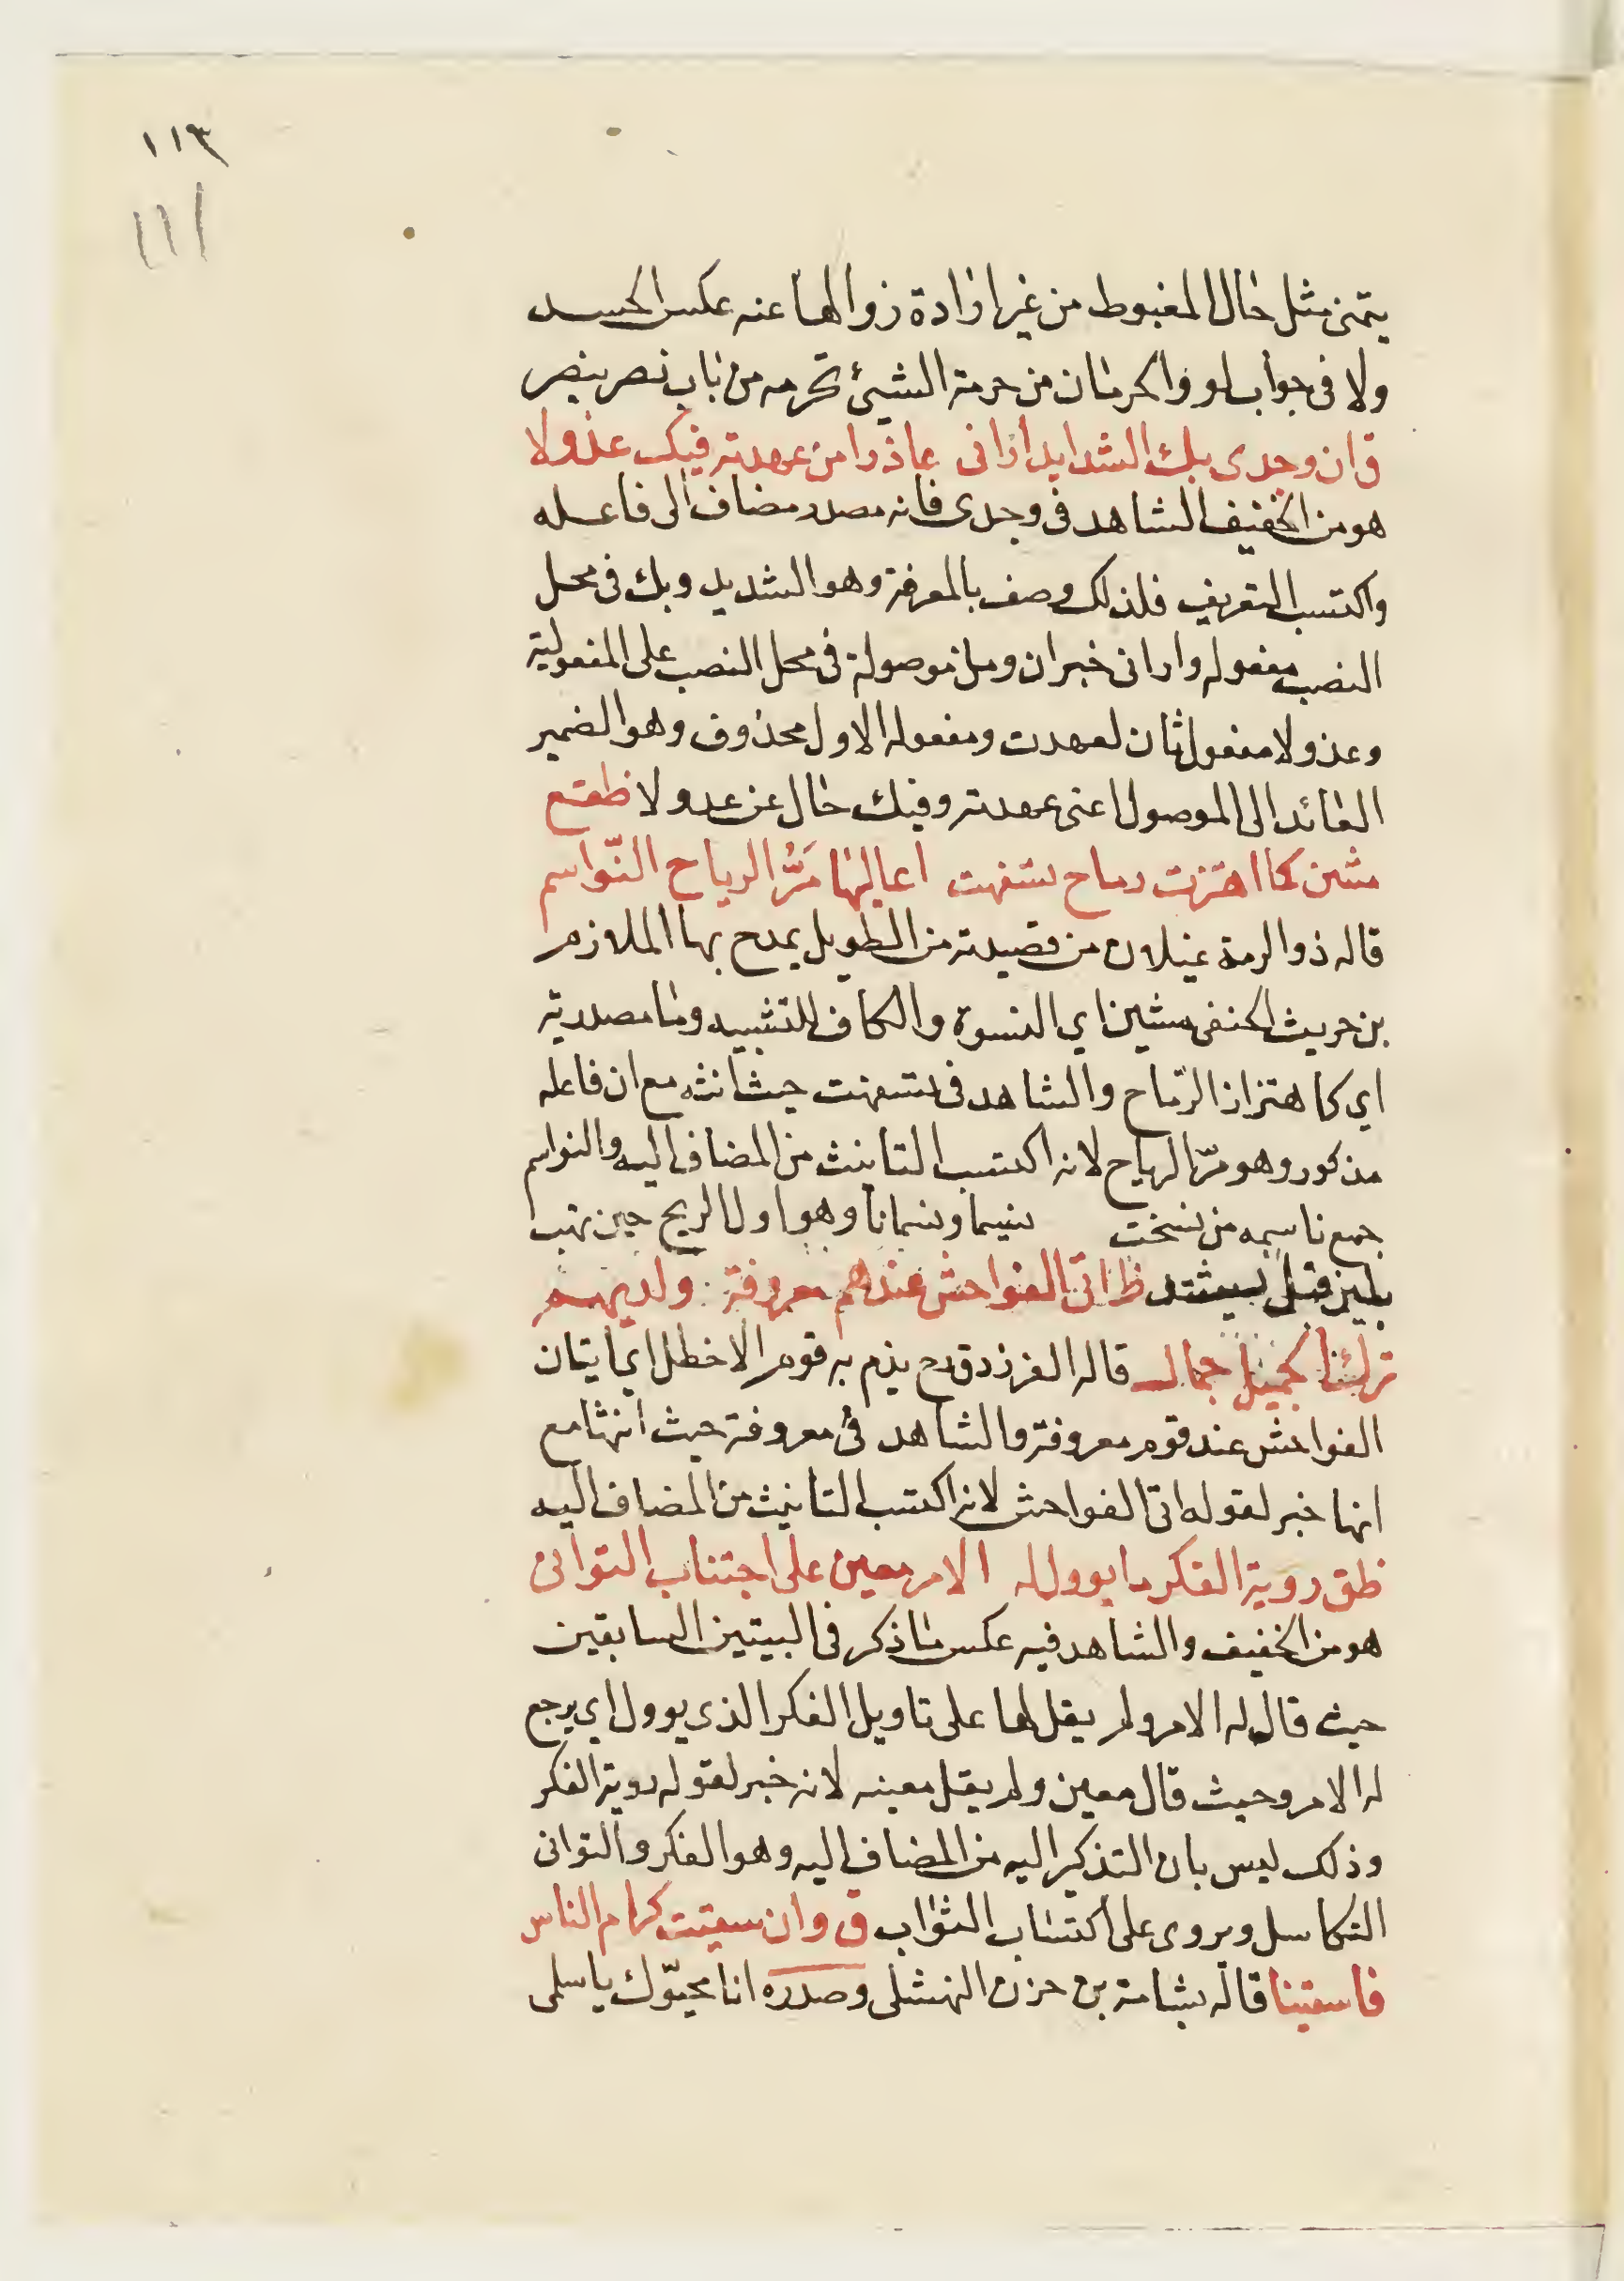 ١١٣
١١١
يتمنى مثل حال المغبوط من غير ارادة زوالها عنه عكس الحسد
ولا فى جواب لو والحرمان من حرمة الشيئ تحرمه من باب نصر ينصر
ق ان وجدى بك الشديد ارانى عاذرا من عهدته فيك عذولا
هو من الخفيف الشاهد فى وجدى فانه مصدر مضاف الى فاعله
واكتسب التعريف فلذلك وصف بالمعرفة وهو الشديد وبك فى محل
النصب مفعوله وارانى خبر ان ومن موصولة فى محل النصب على المفعولية
وعذولا مفعول ثان لعهدت ومفعوله الاول محذوف وهو الضمير
العائد الى الموصول اعنى عهدته وفيك حال عن عدولا ظقع
مشين كما اهتزت رماح تسفهت اعاليها مَرُّ الرياح النّواسم
قاله ذو الرمة غيلان من قصيدته من الطويل يمدح بها الملازم
بن حريث الحنفى مشين اي النسوة والكاف للتشبيه وما مصدرية
اي كاهتزاز الرماح والشاهد فى تسفهت حيث انثه مع ان فاعله
مذكور وهو مرّ الرياح لانه اكتسب التانيث من المضاف اليه والنواسم
جمع ناسمه من نسخت نسيما ونسمانا وهو اول الريح حين تهب
بلين قبل يشتد ظ اتى الفواحش عندهم معروفة ولديهم
ترك الجميل جمال قاله الفرزدق ح يذم به قوم الاخطل اي اتيان
الفواحش عند قوم معروفة والشاهد فى معروفة حيث انثها مع
انها خبر لقوله اتى الفواحش لانه اكتسب التانيث من المضاف اليه
ظق روية الفكر ما يوول له الامر معين على اجتناب التوانى
هو من الخفيف والشاهد فيه عكس ما ذكر فى البيتين السابقين
حيث قال له الامر ولم يقل لها على تاويل الفكر الذى يوول اي يرجع
له الامر وحيث قال معين ولم يقل معينه لانه خبر لقوله روية الفكر
وذلك ليس بان التذكير اليه من المضاف اليه وهو الفكر والتوانى
التكاسل ويروى على اكتساب الثواب ق وان سقيت كرام الناس
فاسقينا قاله بشامة بن حزن النهشلى وصدره انا محيّوك يا سلمى